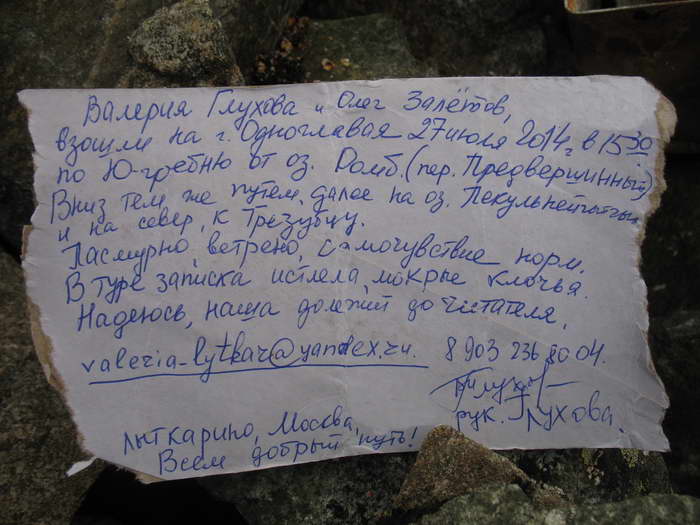 Валерия Глухова и Олег Залётов,
взошли на г. Одноглавая 27 июля 2014г. в 15 30
по Ю-гребню от оз. Ромб. (пер. Предвершинный)
Вниз тем же путем, далее на оз. Пекульнейгытгын
и на север, к Трезубцу.
Пасмурно, ветрено, самочувствие норм.
В туре записка истлела, мокрые клочья.
Надеюсь, наша долежит до читателя.
valeria-lytkar@yandex.ru. 8 903 236 20 04.
рук. Глухова.
Лыткарино, Москва,
Всем добрый путь!